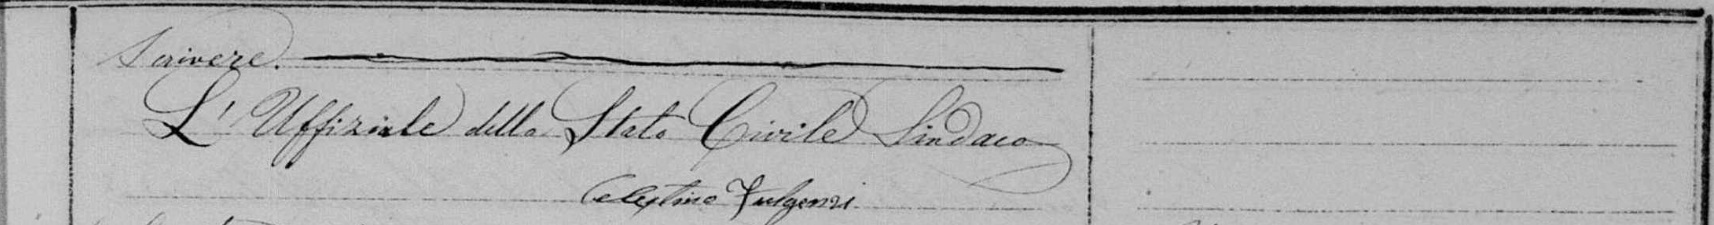 scrivere.
L'Uffiziale dello Stato Civile Sindaco
Celestino Fulgenzi